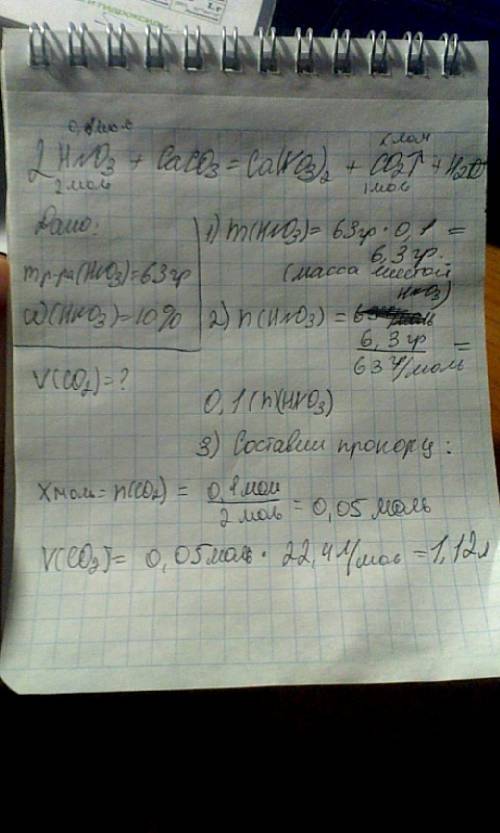 0,1моль x моль
2HNO3 + CaCO3 = Ca(NO3)2 + CO2↑ + H2O
2моль 1моль
Дано:
mр-ра(HNO3)=63гр
ω(HNO3)=10%
V(CO2)=?
1) m(HNO3)= 63гр · 0,1 =
6,3гр.
(масса чистой
HNO3)
2) n(HNO3) =
6,3гр
63г/моль =
0,1(n)(HNO3)
3) Составим пропорц:
Xмоль=n(CO2) = 0,1мол
2моль = 0,05моль
V(CO2)= 0,05моль· 22,4л/моль =1,12л